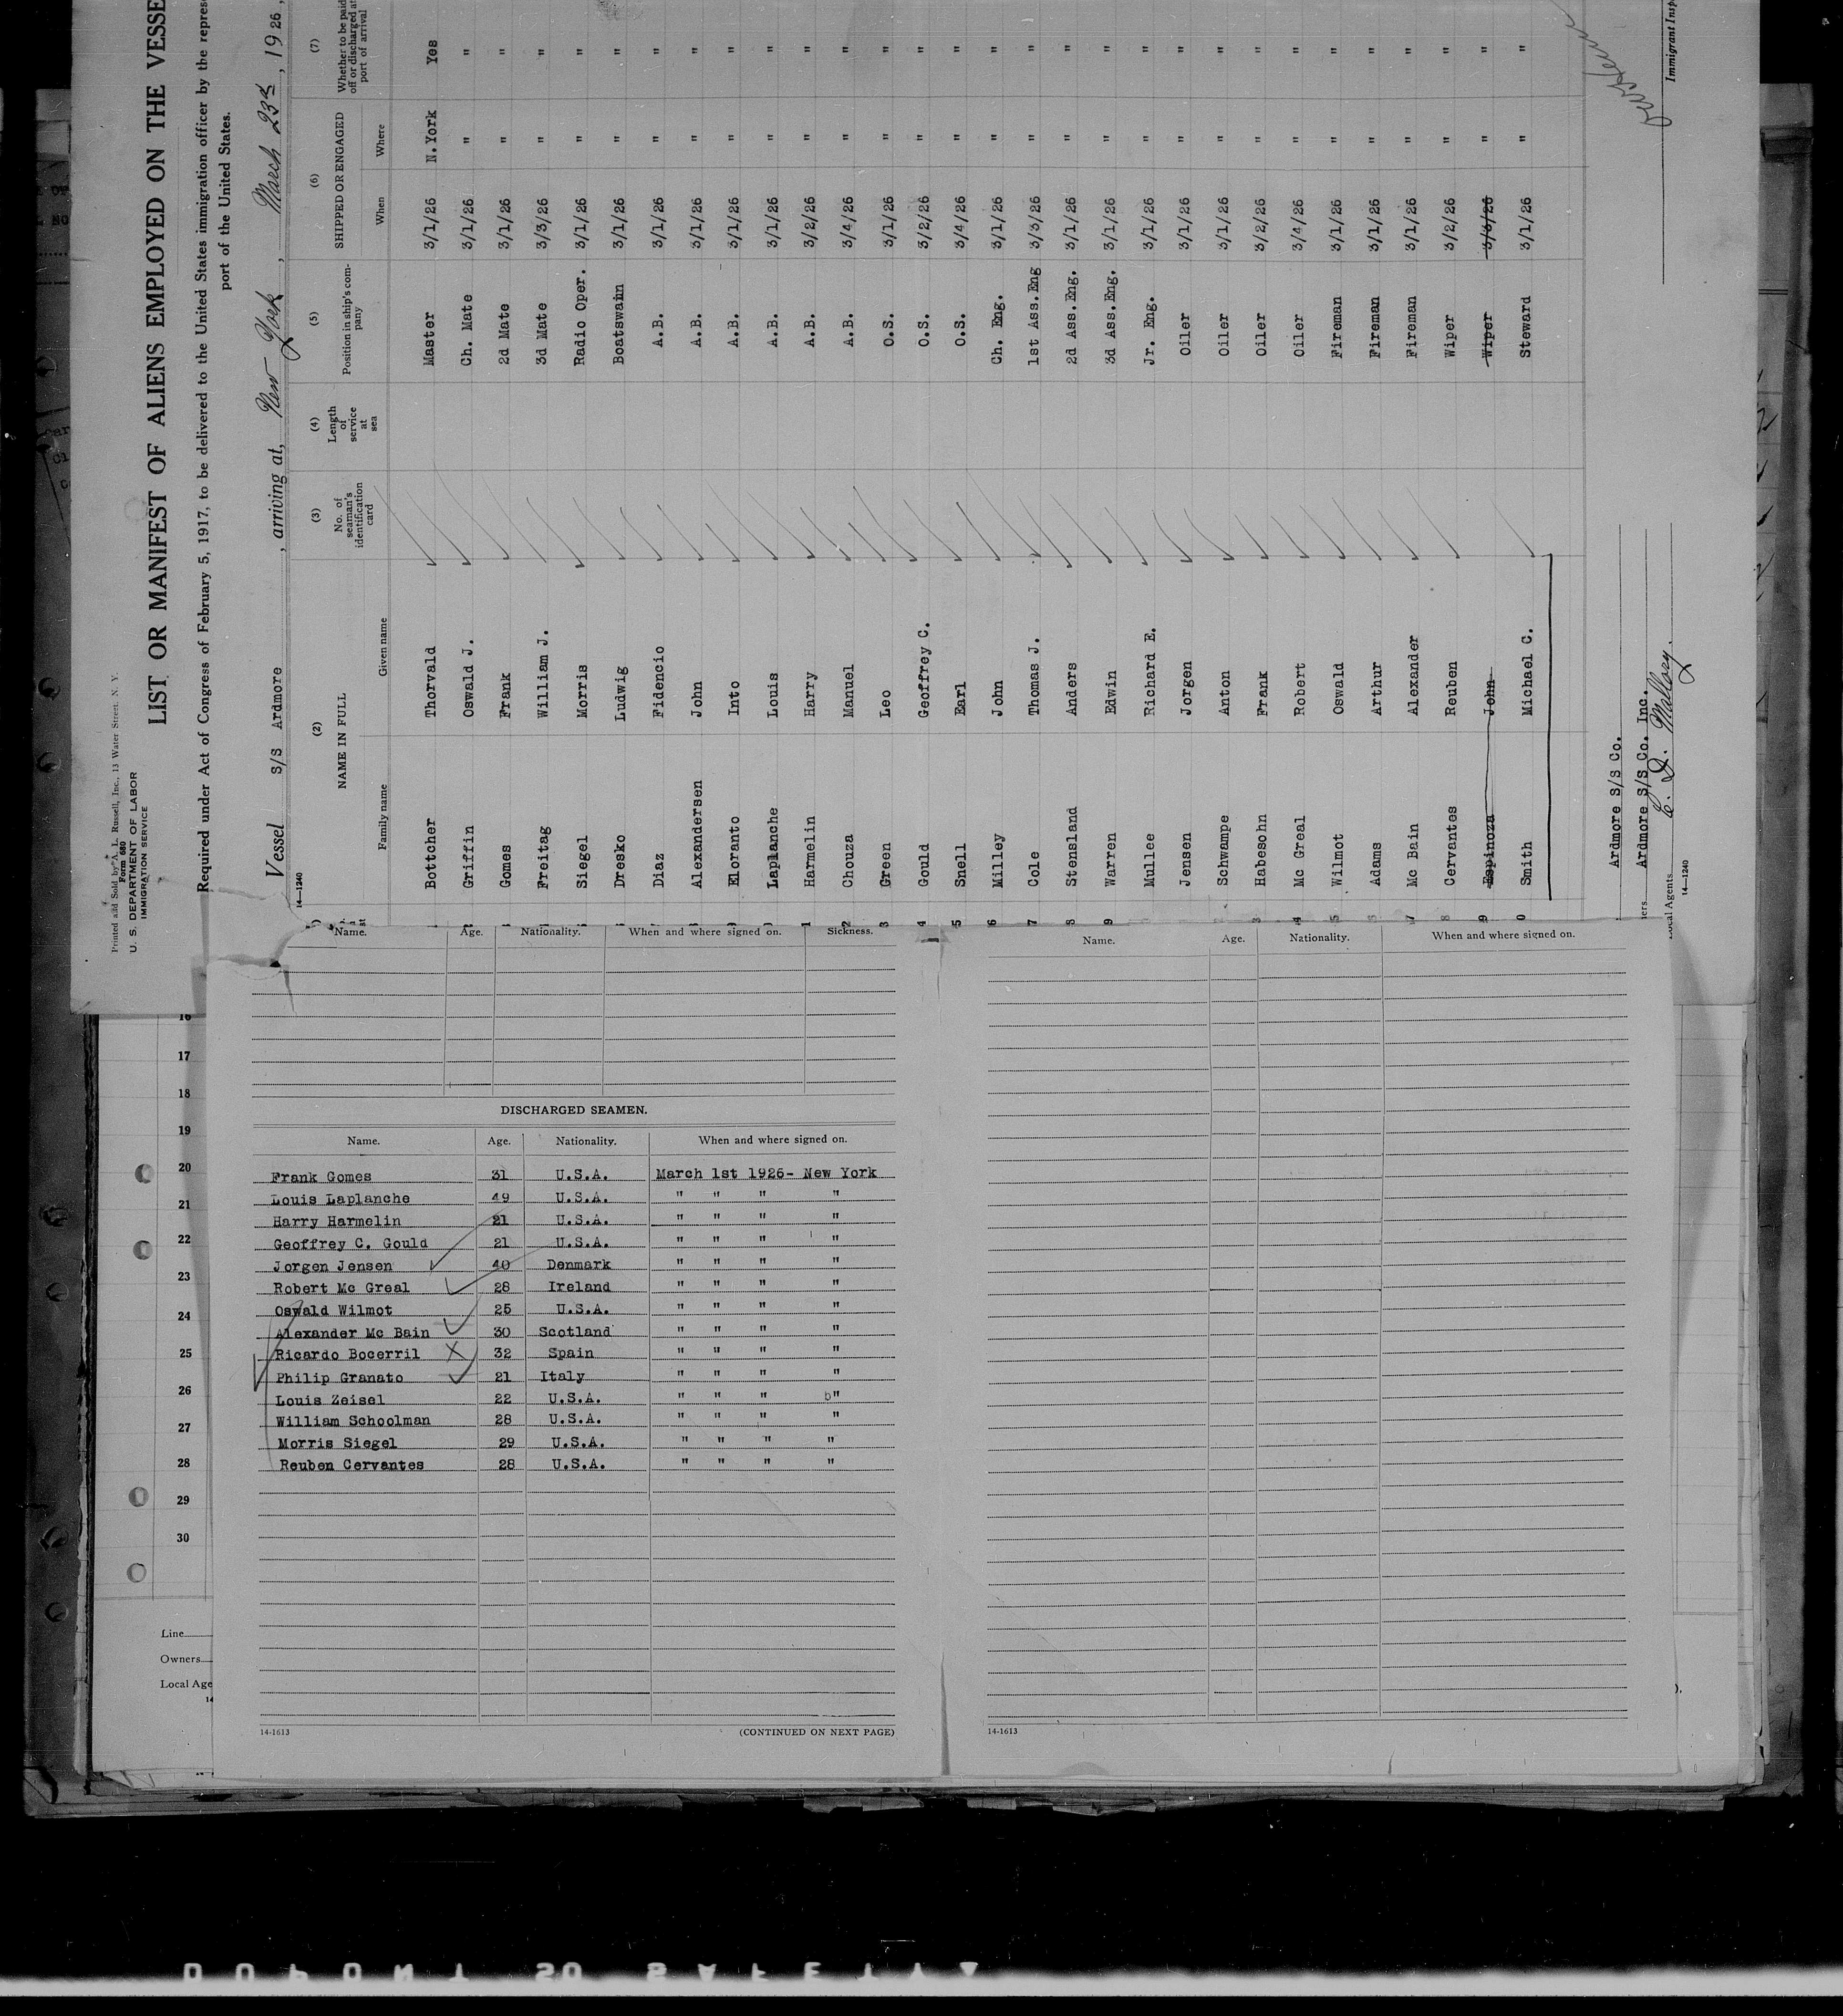 Printed and Sold by A. L. Russell, Inc., 13 Water Street, N. Y.
Form 680
U. S. DEPARTMENT OF LABOR
IMMIGRATION SERVICE
LIST OR MANIFEST OF ALIENS EMPLOYED ON THE VESSE
Required under Act of Congress of February 5, 1917, to be delivered to the United States immigration officer by the repres
port of the United States.
Vessel S/S Ardmore , arriving at, New York , March 23rd , 1926,
14—1240
(2) (3) (4) (5) (6) (7)
NAME IN FULL No. of seaman's identification card Length of service at sea Position in ship's company SHIPPED OR ENGAGED Whether to be paid off or discharged at port of arrival
Family name Given name When Where
Bottcher Thorvald Master 3/1/26 N.York Yes
Griffin Oswald J. Ch. Mate 3/1/26 " "
Gomes Frank 2d Mate 3/1/26 " "
Freitag William J. 3d Mate 3/3/26 " "
Siegel Morris Radio Oper. 3/1/26 " "
Dresko Ludwig Boatswain 3/1/26 " "
Diaz Fidencio A.B. 3/1/26 " "
Alexandersen John A.B. 3/1/26 " "
Eloranto Into A.B. 3/1/26 " "
Laplanche Louis A.B. 3/1/26 " "
Harmelin Harry A.B. 3/2/26 " "
2 Chouza Manuel A.B. 3/4/26 " "
3 Green Leo O.S. 3/1/26 " "
4 Gould Geoffrey C. O.S. 3/2/26 " "
5 Snell Earl O.S. 3/4/26 " "
6 Milley John Ch. Eng. 3/1/26 " "
7 Cole Thomas J. 1st Ass.Eng 3/3/26 " "
8 Stensland Anders 2d Ass.Eng. 3/1/26 " "
9 Warren Edwin 3d Ass.Eng. 3/1/26 " "
Mullee Richard E. Jr. Eng. 3/1/26 " "
Jensen Jorgen Oiler 3/1/26 " "
Schwampe Anton Oiler 3/1/26 " "
3 Habesohn Frank Oiler 3/2/26 " "
4 Mc Greal Robert Oiler 3/4/26 " "
5 Wilmot Oswald Fireman 3/1/26 " "
Adams Arthur Fireman 3/1/26 " "
7 Mc Bain Alexander Fireman 3/1/26 " "
8 Cervantes Reuben Wiper 3/2/26 " "
9 Espinoza John Wiper 3/3/26 " "
0 Smith Michael C. Steward 3/1/26 " "
Ardmore S/S Co.
ers Ardmore S/S Co. Inc.
cal Agents C. D. Mallory.
14—1240
Immigrant Insp
Name. Age. Nationality. When and where signed on. Sickness.
DISCHARGED SEAMEN.
Name. Age. Nationality. When and where signed on.
Frank Gomes 31 U.S.A. March 1st 1926- New York
Louis Laplanche 49 U.S.A. " " " "
Harry Harmelin 21 U.S.A. " " " "
Geoffrey C. Gould 21 U.S.A. " " " "
Jorgen Jensen 40 Denmark " " " "
Robert Mc Greal 28 Ireland " " " "
Oswald Wilmot 25 U.S.A. " " " "
Alexander Mc Bain 30 Scotland " " " "
Ricardo Bocerril X 32 Spain " " " "
Philip Granato 21 Italy " " " "
Louis Zeisel 22 U.S.A. " " " "
William Schoolman 28 U.S.A. " " " "
Morris Siegel 29 U.S.A. " " " "
Reuben Cervantes 28 U.S.A. " " " "
14-1613 (CONTINUED ON NEXT PAGE)
Name. Age. Nationality. When and where signed on.
14-1613
16
17
18
19
20
21
22
23
24
25
26
27
28
29
30
Line
Owners
Local Age
14